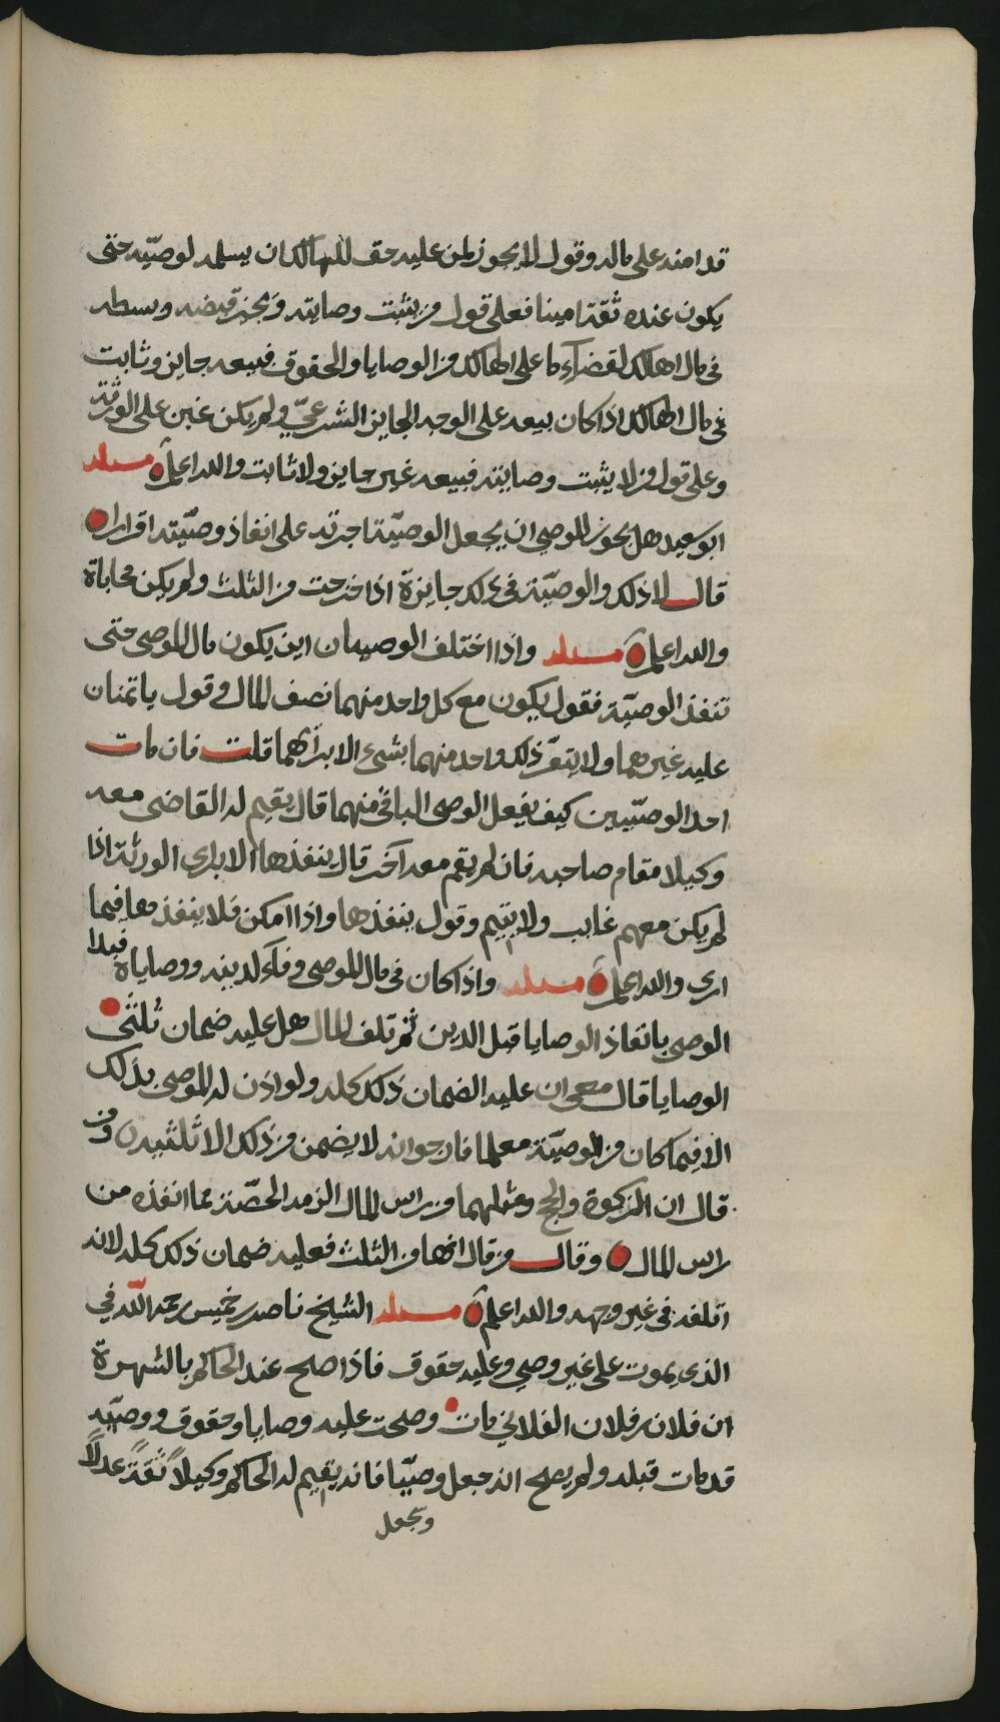 قد امنه على ماله وقول لا يجوز لمن عليه حق للهالك ان يسلمه لوصيّه حتى
يكون عنده ثقة امينا فعلى قول من يثبت وصايته ويجيز قبضه وبسطه
في مال الهالك لقضآء ما على الهالك من الوصايا والحقوق فبيعه جايز وثابت
في مال الهالك اذا كان بيعه على الوجه الجايز الشرعيّ ولم يكن غبن على الورثة
وعلى قول من لا يثبت وصايته فبيعه غير جايز ولا ثابت والله اعلم مسئله
ابو سعيد هل يجوز للموصي ان يجعل الوصيّة اجرته على انفاذ وصيّته اقرارا
قال لا ذلك والوصيّة في ذلك جايزة اذا خرجت من الثلث ولم يكن محاباة
والله اعلم مسئله واذا اختلف الوصيان اين يكون مال الموصى حتى
تنفذ الوصيّة فقول يكون مع كل واحد منهما نصف المال وقول ياتمنان
عليه غيرهما ولا يتفرّد كل واحد منهما بشيء الا برأيهما قلت فان مات
احد الوصيّيين كيف يفعل الوصى الباقي منهما قال يقيم له القاضى معه
وكيلا مقام صاحبه فان لم يقم معه آخر قال ينفذها الا براى الورثة اذا
لم يكن معهم غايب ولا يتيم وقول ينفذها واذا امكن فلا ينفذ معا فيما
ارى والله اعلم مسئله واذا كان في مال الموصى وفآء لدينه ووصاياه فبدا
الوصي بانفاذ الوصايا قبل الدين ثم تلف المال هل عليه ضمان ثلثي
الوصايا قال معى ان عليه الضمان ذلك كله ولو اذن له الموصى بذلك
الا فيما كان من الوصيّة معلما فارجو انه لا يضمن من ذلك الا ثلثيه ومن
قال ان الزكوة والحج ومثلهما من راس المال الزمه الحصّة مما انفذه من
راس المال وقال من قال انها من الثلث فعليه ضمان ذلك كله لانه
اتلفه في غير وجهه والله اعلم مسئله الشيخ ناصر بن خميس رحمه اللّه في
الذى يموت على غير وصي وعليه حقوق فاذا صح عند الحاكم بالشهرة
ان فلان بن فلان الفلاني مات وصحت عليه وصايا وحقوق ووصيّه
قد مات قبله ولم يصح انه جعل وصيّا فانه يقيم له الحاكم وكيلاً ثقةً عدلاً
ويجعل